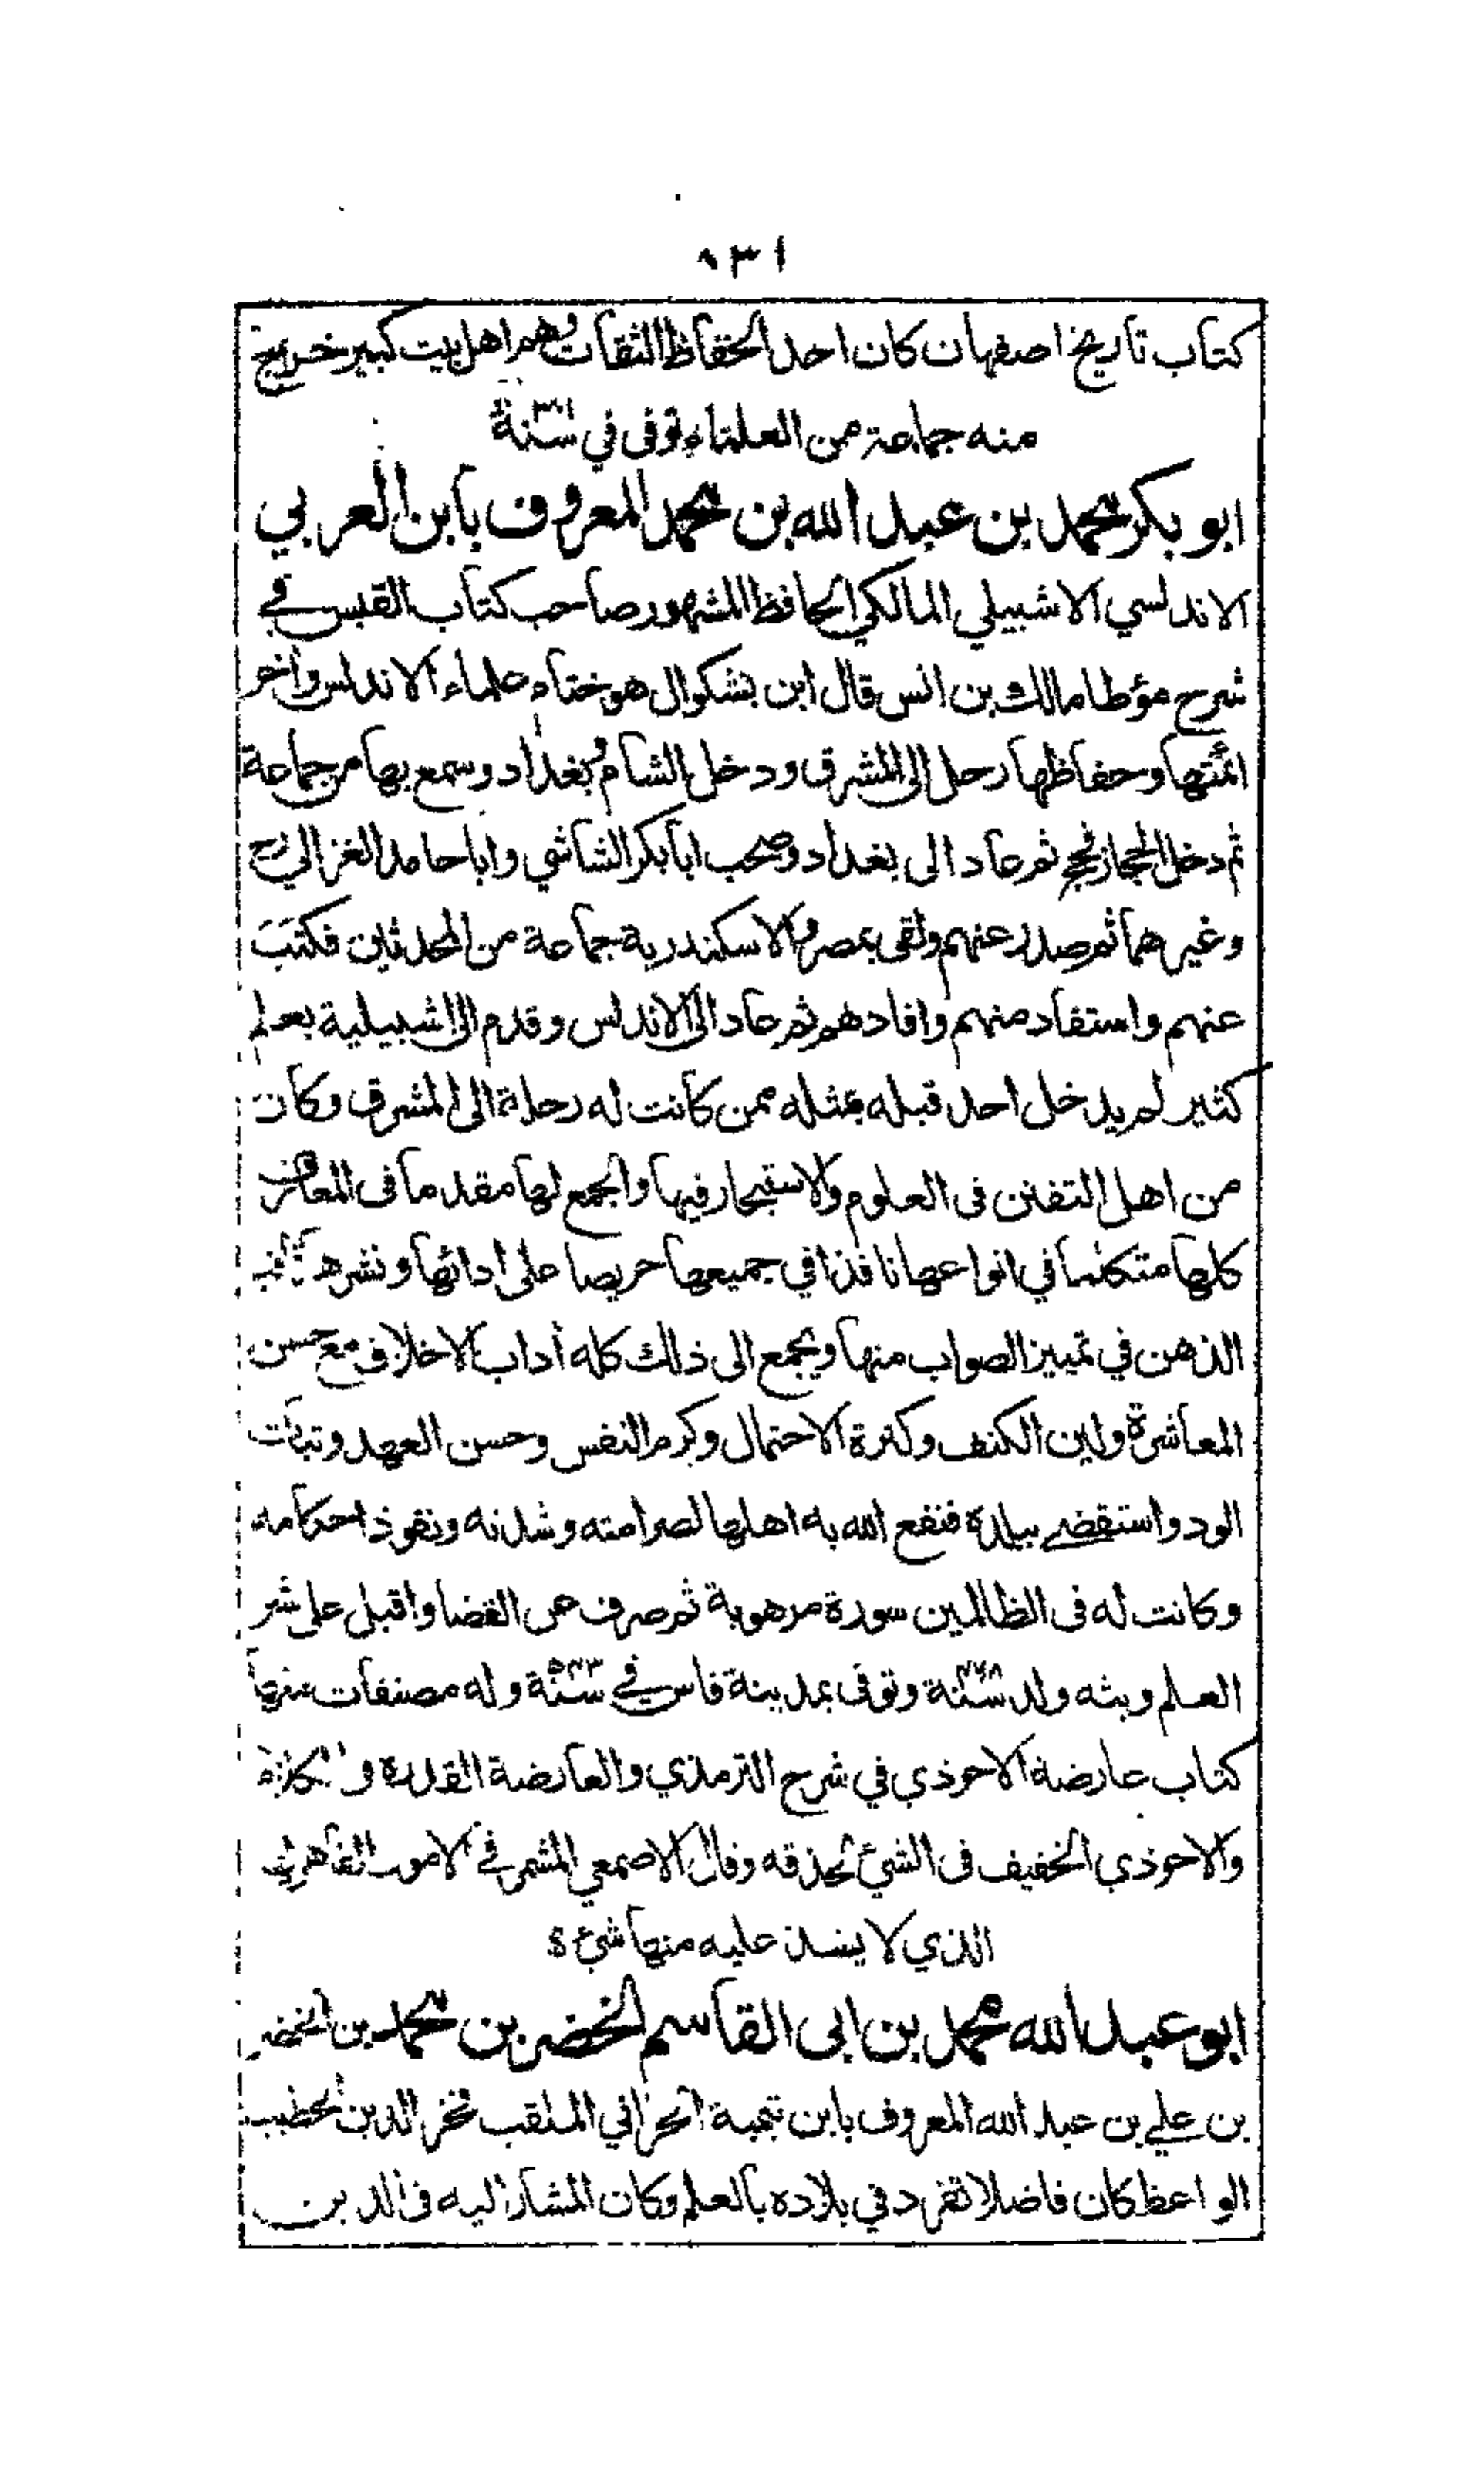 ١٣٩
كتاب تاريخ اصفهان كان احد الحفاظ الثقات وهم اهل بيت كبير خريج
منه جماعة من العلماء توفى في سنة ٣٠١
ابو بكر محمد بن عبد الله بن محمد المعروف بابن العربي
الاندلسي الاشبيلي المالكي الحافظ المشهور صاحب كتاب القبس في
شرح مؤطا مالك بن انس قال ابن بشكوال هو ختام علماء الاندلس واخر
ائمتها وحفاظها رحل الى المشرق ودخل الشام وبغداد وسمع بها من جماعة
ثم دخل الحجاز فحج ثم عاد الى بغداد وصحب ابا بكر الشاشي وابا حامد الغزالي رح
وغيرهما ثم صدر عنهم ولقى بمصر والاسكندرية جماعة من المحدثين فكتب
عنهم واستفاد منهم وافادهم ثم عاد الى الاندلس وقدم الى اشبيلية بعلم
كثير لم يدخل احد قبله بمثله ممن كانت له رحلة الى المشرق وكان
من اهل التفنن فى العلوم والاستبحار فيها والجمع لها مقدما فى المعارف
كلها متكلما في انواعها نافذا في جميعها حريصا على ادائها ونشرها ثاقب
الذهن في تمييز الصواب منها ويجمع الى ذلك كله آداب الاخلاق مع حسن
المعاشرة ولين الكنف وكثرة الاحتمال وكرم النفس وحسن العهد وثبات
الود واستقضى ببلده فنفع الله به اهلها لصرامته وشدته ونفوذ احكامه
وكانت له فى الظالمين سورة مرهوبة ثم صرف عن القضا واقبل على نشر
العلم وبثه ولد سنة ٤٦٨ وتوفى بمدينة فاس في سنة ٥٤٣ وله مصنفات منها
كتاب عارضة الاحوذي في شرح الترمذي والعارضة القدرة و
والاحوذي الخفيف فى الشئ لحذقه وقال الاصمعي المشمر في الامور القاهر لها
الذي لا يشذ عليه منها شئ ة
ابو عبد الله محمد بن ابى القاسم الخضر بن محمد بن الخضر
بن علي بن عبد الله المعروف بابن تيمية الحراني الملقب فخر الدين الخطيب
الواعظ كان فاضلا تفرد في بلاده بالعلم وكان المشار اليه فى الدين